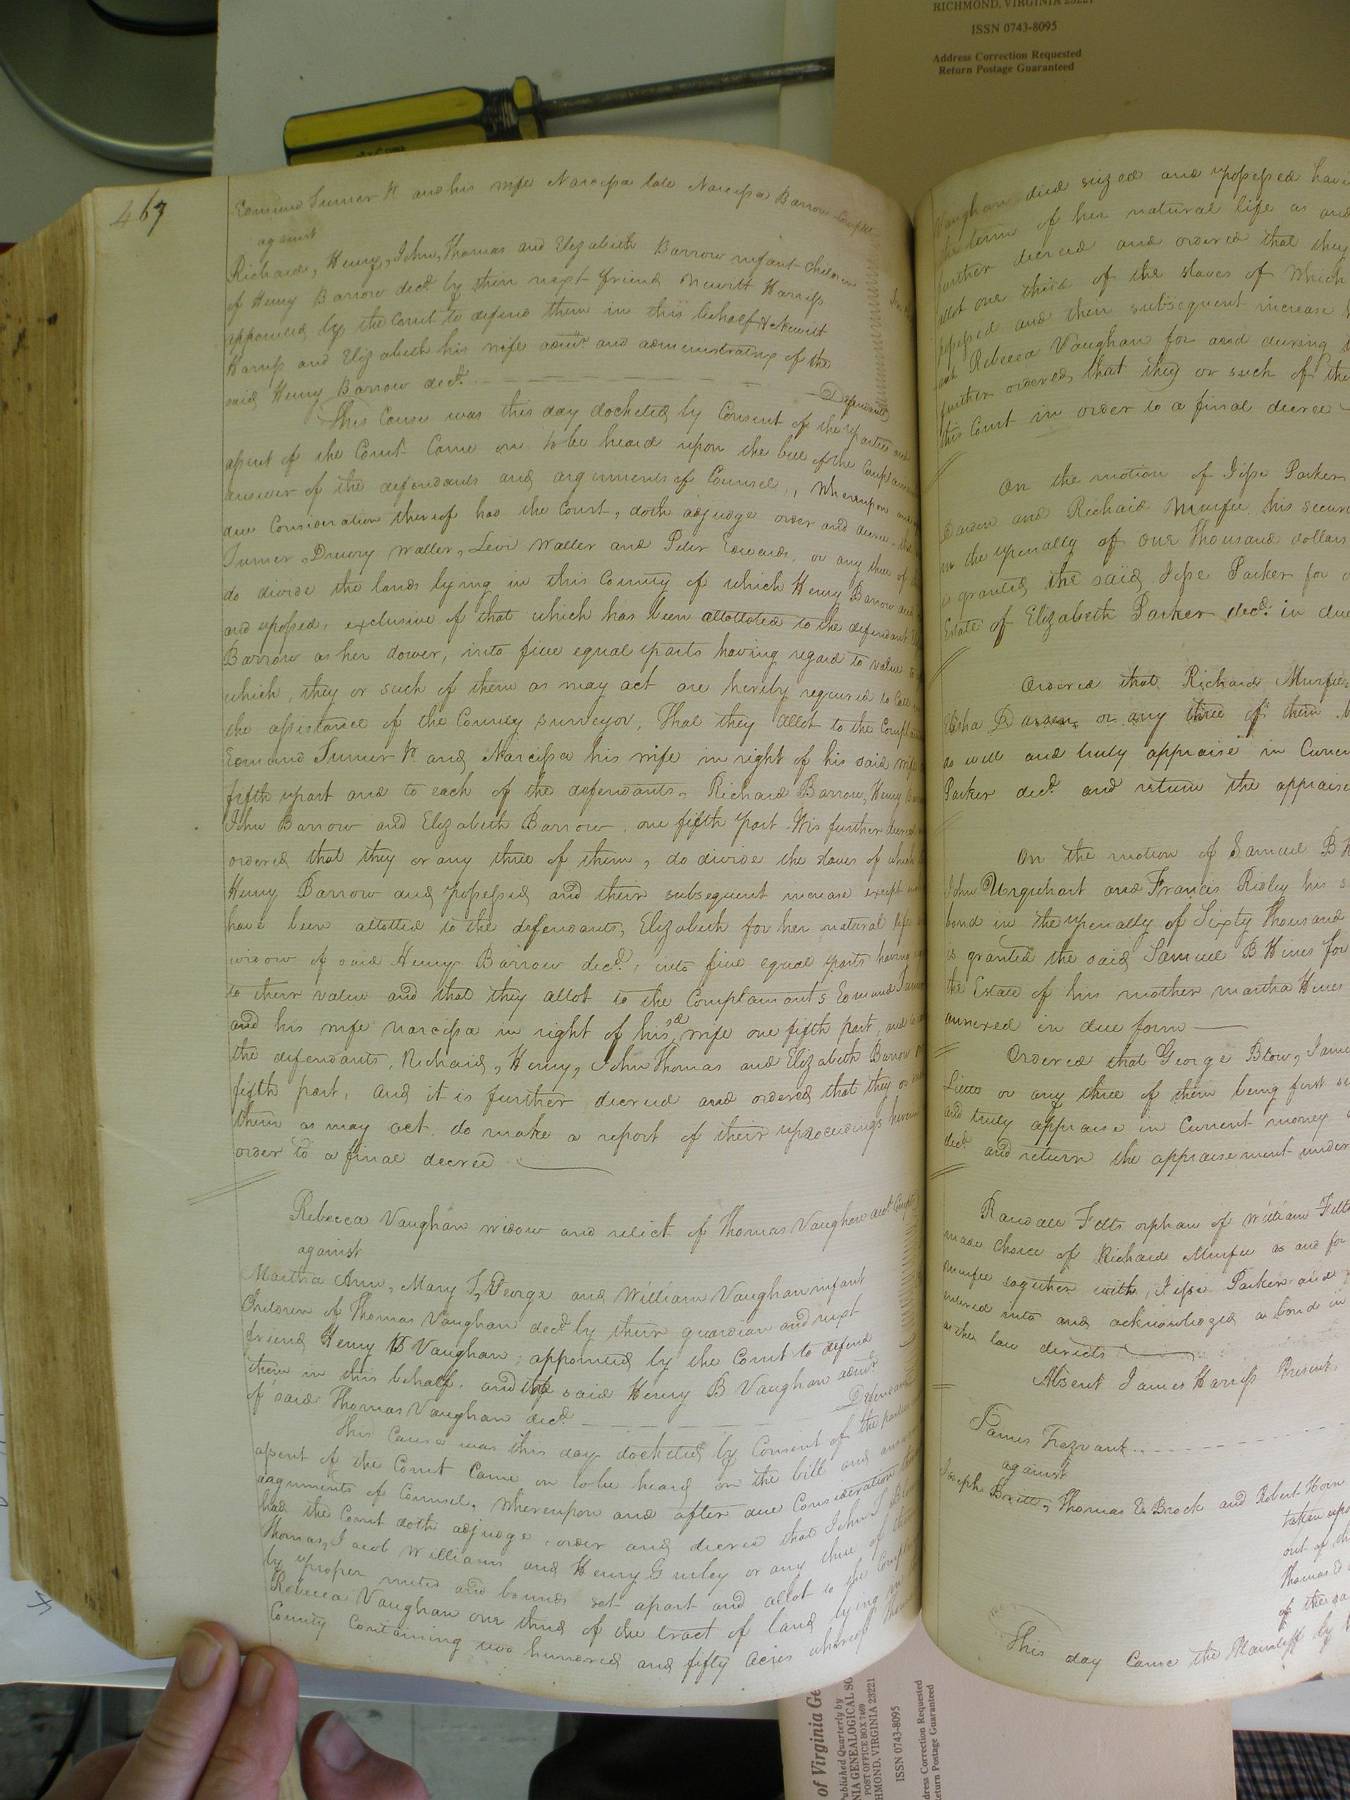 RICHMOND, VIRGINIA 23221
ISSN 0743-8095
Address Correction Requested
Return Postage Guaranteed
467
Edmund Turner Jr and his wife Narcissa late Narcissa Barrow
against
Richard, Henry, John, Thomas and Elizabeth Barrow infant children
of Henry Barrow decd. by their next friend Newitt Harriss
appointed by the Court to defend them in this behalf & Newitt
Harriss and Elizabeth his wife admr. and administratrix of the
said Henry Barrow decd. Defendants
This Cause was this day docketed by Consent of the parties and
assent of the Court Came on to be heard upon the bill of the Complainants
answer of the defendants and arguments of Counsel, Whereupon and
due Consideration thereof had the Court, doth adjudge order and decree that
Turner, Drewry Waller, Levi Waller and Peter Edwards, or any three of
do divide the lands lying in this County of which Henry Barrow died
and possed, exclusive of that which has been allottated to the defendant
Barrow as her dower, into five equal parts having regard to value
which, they or such of them as may act are hereby required to Call
the assistance of the County surveyor, That they allot to the
Edmund Turner Jr and Narcissa his wife in right of his said wife
fifth part and to each of the defendants, Richard Barrow, Henry
John Barrow and Elizabeth Barrow, one fifth part. Tis further decreed
ordered that they or any three of them, do divide the slaves of which
Henry Barrow and possessed and their subsequent increase except
have been allotted to the defendants, Elizabeth for her natural life
widow of said Henry Barrow decd. into five equal parts having
to their value and that they allot to the Complainants Edmund Turner
and his wife narcissa in right of his sd wife one fifth part, and
the defendants, Richard, Henry, John Thomas and Elizabeth Barrow
fifth part, and it is further decreed and ordered that they or
them as may act do make a report of their proceedings herein
order to a final decree
Rebecca Vaughan widow and relict of Thomas Vaughan decd.
against
Martha Ann, Mary T, George and William Vaughan infant
Children of Thomas Vaughan decd. by their guardian and next
friend Henry B Vaughan, appointed by the Court to defend
them in this behalf. and the said Henry B Vaughan admr.
of said Thomas Vaughan decd. Defendants
This Cause was this day docketed by Consent of the parties
assent of the Court Came on to be heard on the bill and
arguments of Counsel, Whereupon and after due Consideration
had the Court doth adjudge, order and decree that John T
Thomas, Jacob Williams and Henry Gurley or any three of
by proper meted and bounds set apart and allot to the
Rebecca Vaughan one third of the tract of land lying in
County Containing two hundred and fifty acres whereof
Vaughan died seized and possessed
the term of her natural life as and
further decreed and ordered that they
allot one third of the slaves of Which
possessed and their subsequent increase
said Rebecca Vaughan for and during
further ordered, that they or such of
this Court in order to a final decree
On the motion of Jesse Parker
Darden and Richard Murfee his
in the penalty of one Thousand dollars
is granted the said Jesse Parker for
Estate of Elizabeth Parker decd. in due
Ordered that, Richard Murfee
Elisha Darden, or any three of them
as well and truly appraise in
Parker decd. and return the
On the motion of Samuel B
John Urquhart and Francis Ridley his
bond in the penalty of Sixty Thousand
is granted the said Samuel B Hines for
the Estate of his mother martha Hines
annexed in due form
Ordered that George Blow,
or any three of them being first
and truly appraise in Current money
decd. and return the appraisement under
Randall Felts orphan of William Felts
made choice of Richard Murfee as and for
murfee together with, Jesse Parker and
entered into and acknowledged a bond in
as the law directs
Absent James Harriss Present
James Trezvant
against
Joseph Thomas E Brock and Robert Horn
taken
out of
Thomas E
of the
This day Came the Plaintiff by
of Virginia
Published Quarterly by
POST OFFICE BOX 7469
RICHMOND, VIRGINIA 23221
ISSN 0743-8095
Address Correction Requested
Return Postage Guaranteed